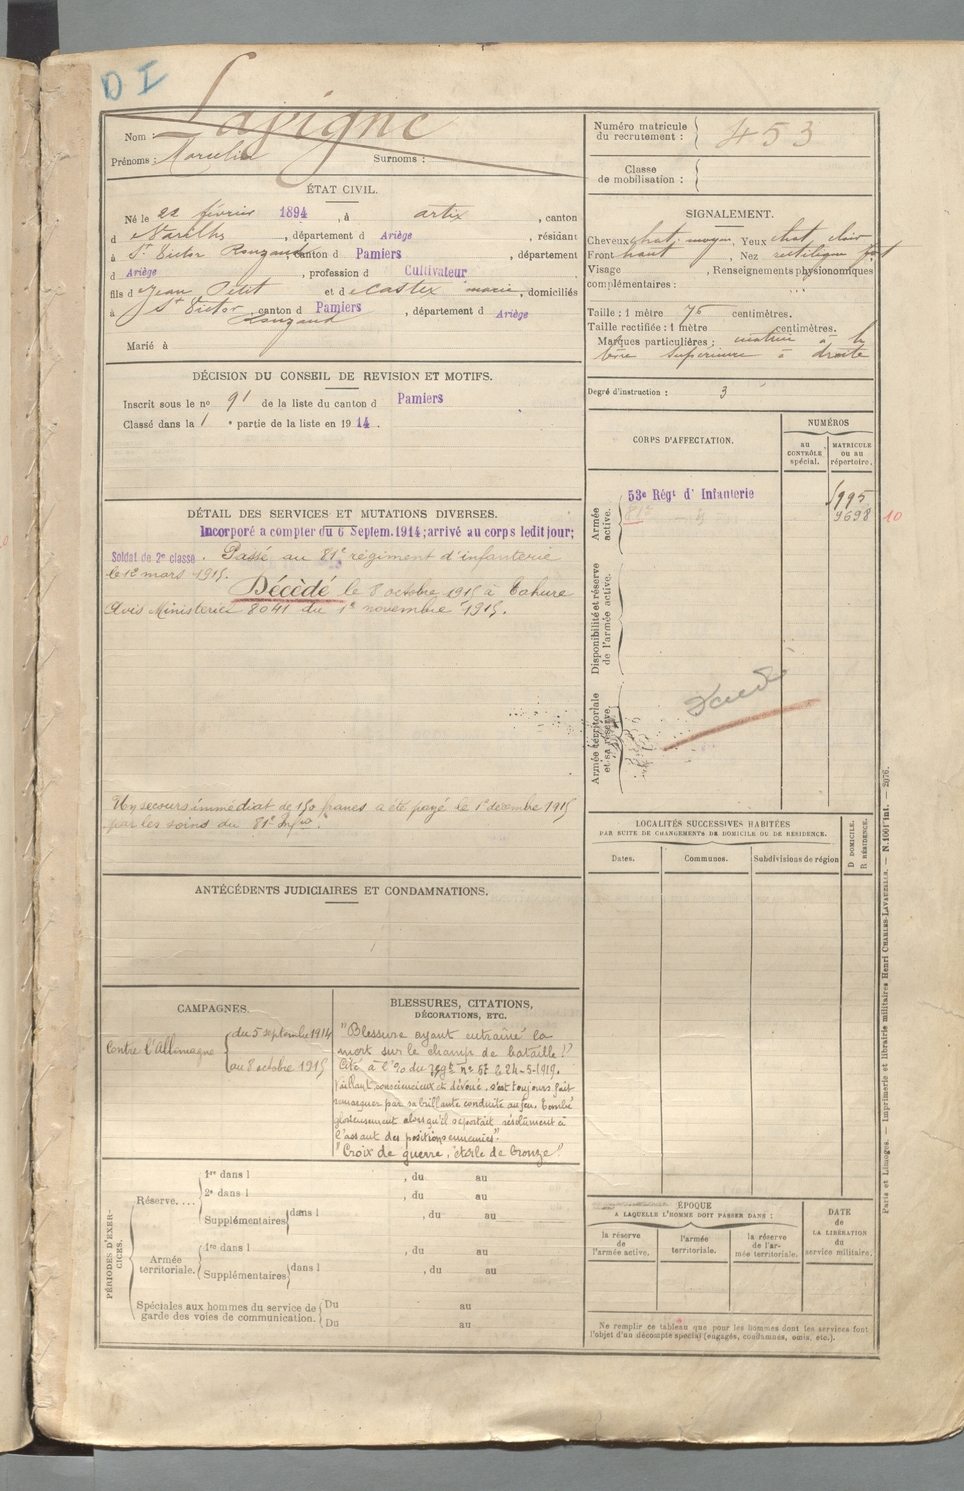 D I
Nom : Lapigne
Prénoms : Marcelin Surnoms :
Numéro matricule
du recrutement : 453
Classe
de mobilisation :
ÉTAT CIVIL.
Né le 22 février 1894, à artix, canton
d Varilhes, département d Ariège, résidant
à St Victor Rouzaud canton d Pamiers, département
d Ariège, profession d Cultivateur
fils d Jean Petit et de Castex marie, domiciliés
à St Victor Rouzaud, canton d Pamiers, département d Ariège
Marié à
SIGNALEMENT.
Cheveux chat. moyen, Yeux chat. clair
Front haut, Nez rectiligne fort
Visage , Renseignements physionomiques
complémentaires :
Taille : 1 mètre 75 centimètres.
Taille rectifiée : 1 mètre centimètres.
Marques particulières : à la
lèvre supérieure à droite
Degré d'instruction : 3
DÉCISION DU CONSEIL DE REVISION ET MOTIFS.
Inscrit sous le no 91 de la liste du canton d Pamiers
Classé dans la 1e partie de la liste en 1914.
DÉTAIL DES SERVICES ET MUTATIONS DIVERSES.
Incorporé a compter du 6 Septem. 1914; arrivé au corps ledit jour;
Soldat de 2e classe. Passé au 81e régiment d'infanterie
le 12 mars 1915.
Décédé le 8 octobre 1915 à Tahure
Avis Ministériel 8041 du 1e novembre 1915.
Un secours immédiat de 150 francs a été payé le 1e décembre 1915
par les soins du 81e Infrie.
CORPS D'AFFECTATION.
NUMÉROS
au
CONTRÔLE
spécial.
MATRICULE
ou au
répertoire.
Armée
active.
53e Régt d' Infanterie
81e
9698 10
Disponibilité et réserve
de l'armée active.
Armée territoriale
et sa réserve.
LOCALITÉS SUCCESSIVES HABITÉES
PAR SUITE DE CHANGEMENTS DE DOMICILE OU DE RÉSIDENCE.
Dates. Communes. Subdivisions de région
D DOMICILE.
R RÉSIDENCE.
ANTÉCÉDENTS JUDICIAIRES ET CONDAMNATIONS.
CAMPAGNES.
Contre l'Allemagne
du 5 septembre 1914
au 8 octobre 1915
BLESSURES, CITATIONS,
DÉCORATIONS, ETC.
"Blessure ayant entraîné la
mort sur le champ de bataille !"
Cité à l'% du no 57 le 24-5-1919.
Vaillant, consciencieux et dévoué, s'est toujours fait
remarquer par sa brillante conduite au feu. Tombé
glorieusement alors qu'il se portait résolument à
l'assaut des positions ennemies"
"Croix de guerre, étoile de bronze"
PÉRIODES D'EXERCICES.
Réserve....
1re dans l , du au
2e dans l , du au
Supplémentaires dans l , du au
Armée
territoriale.
1re dans l , du au
Supplémentaires dans l , du au
Spéciales aux hommes du service de
garde des voies de communication.
Du au
Du au
ÉPOQUE
A LAQUELLE L'HOMME DOIT PASSER DANS :
la réserve
de l'armée active.
l'armée
territoriale.
la réserve
de l'ar-
mée territoriale.
DATE
de
LA LIBÉRATION
du
service militaire.
Ne remplir ce tableau que pour les hommes dont les services font
l'objet d'un décompte spécial (engagés, condamnés, omis, etc.).
Paris et Limoges. — Imprimerie et librairie militaires Henri CHARLES-LAVAUZELLE. — N. 1001 int. — 2976.